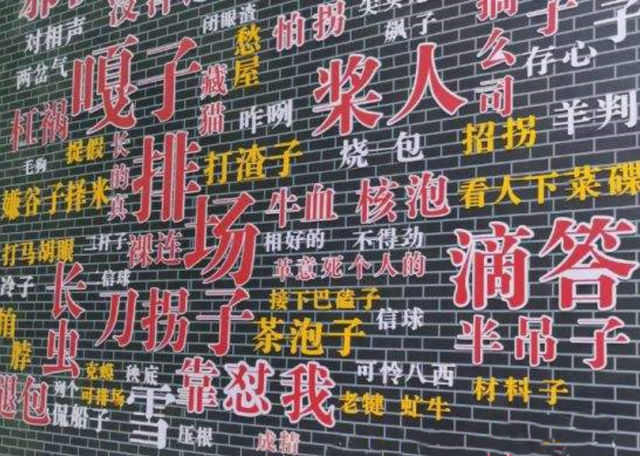 闭眼渣
怕拐
对相声
愁屋
飙子
子
么
司
存心
两岔气
嘎子
藏猫
咋咧
桨人
羊判
杠祸
毛狗
捉假
长的真
排场
打渣子
烧包
招拐
嫌谷子择米
牛血
核泡
看人下菜碟
打马胡眼
裸连
相好的
不得劲
滴答
革意死个人的
冷子
长虫
信球
刀拐子
接下巴磕子
茶泡子
信球
半吊子
脖
包
可排场
秧底
雪
靠怼我
可怜八西
材料子
侃船子
压根
老犍
虻牛
成精